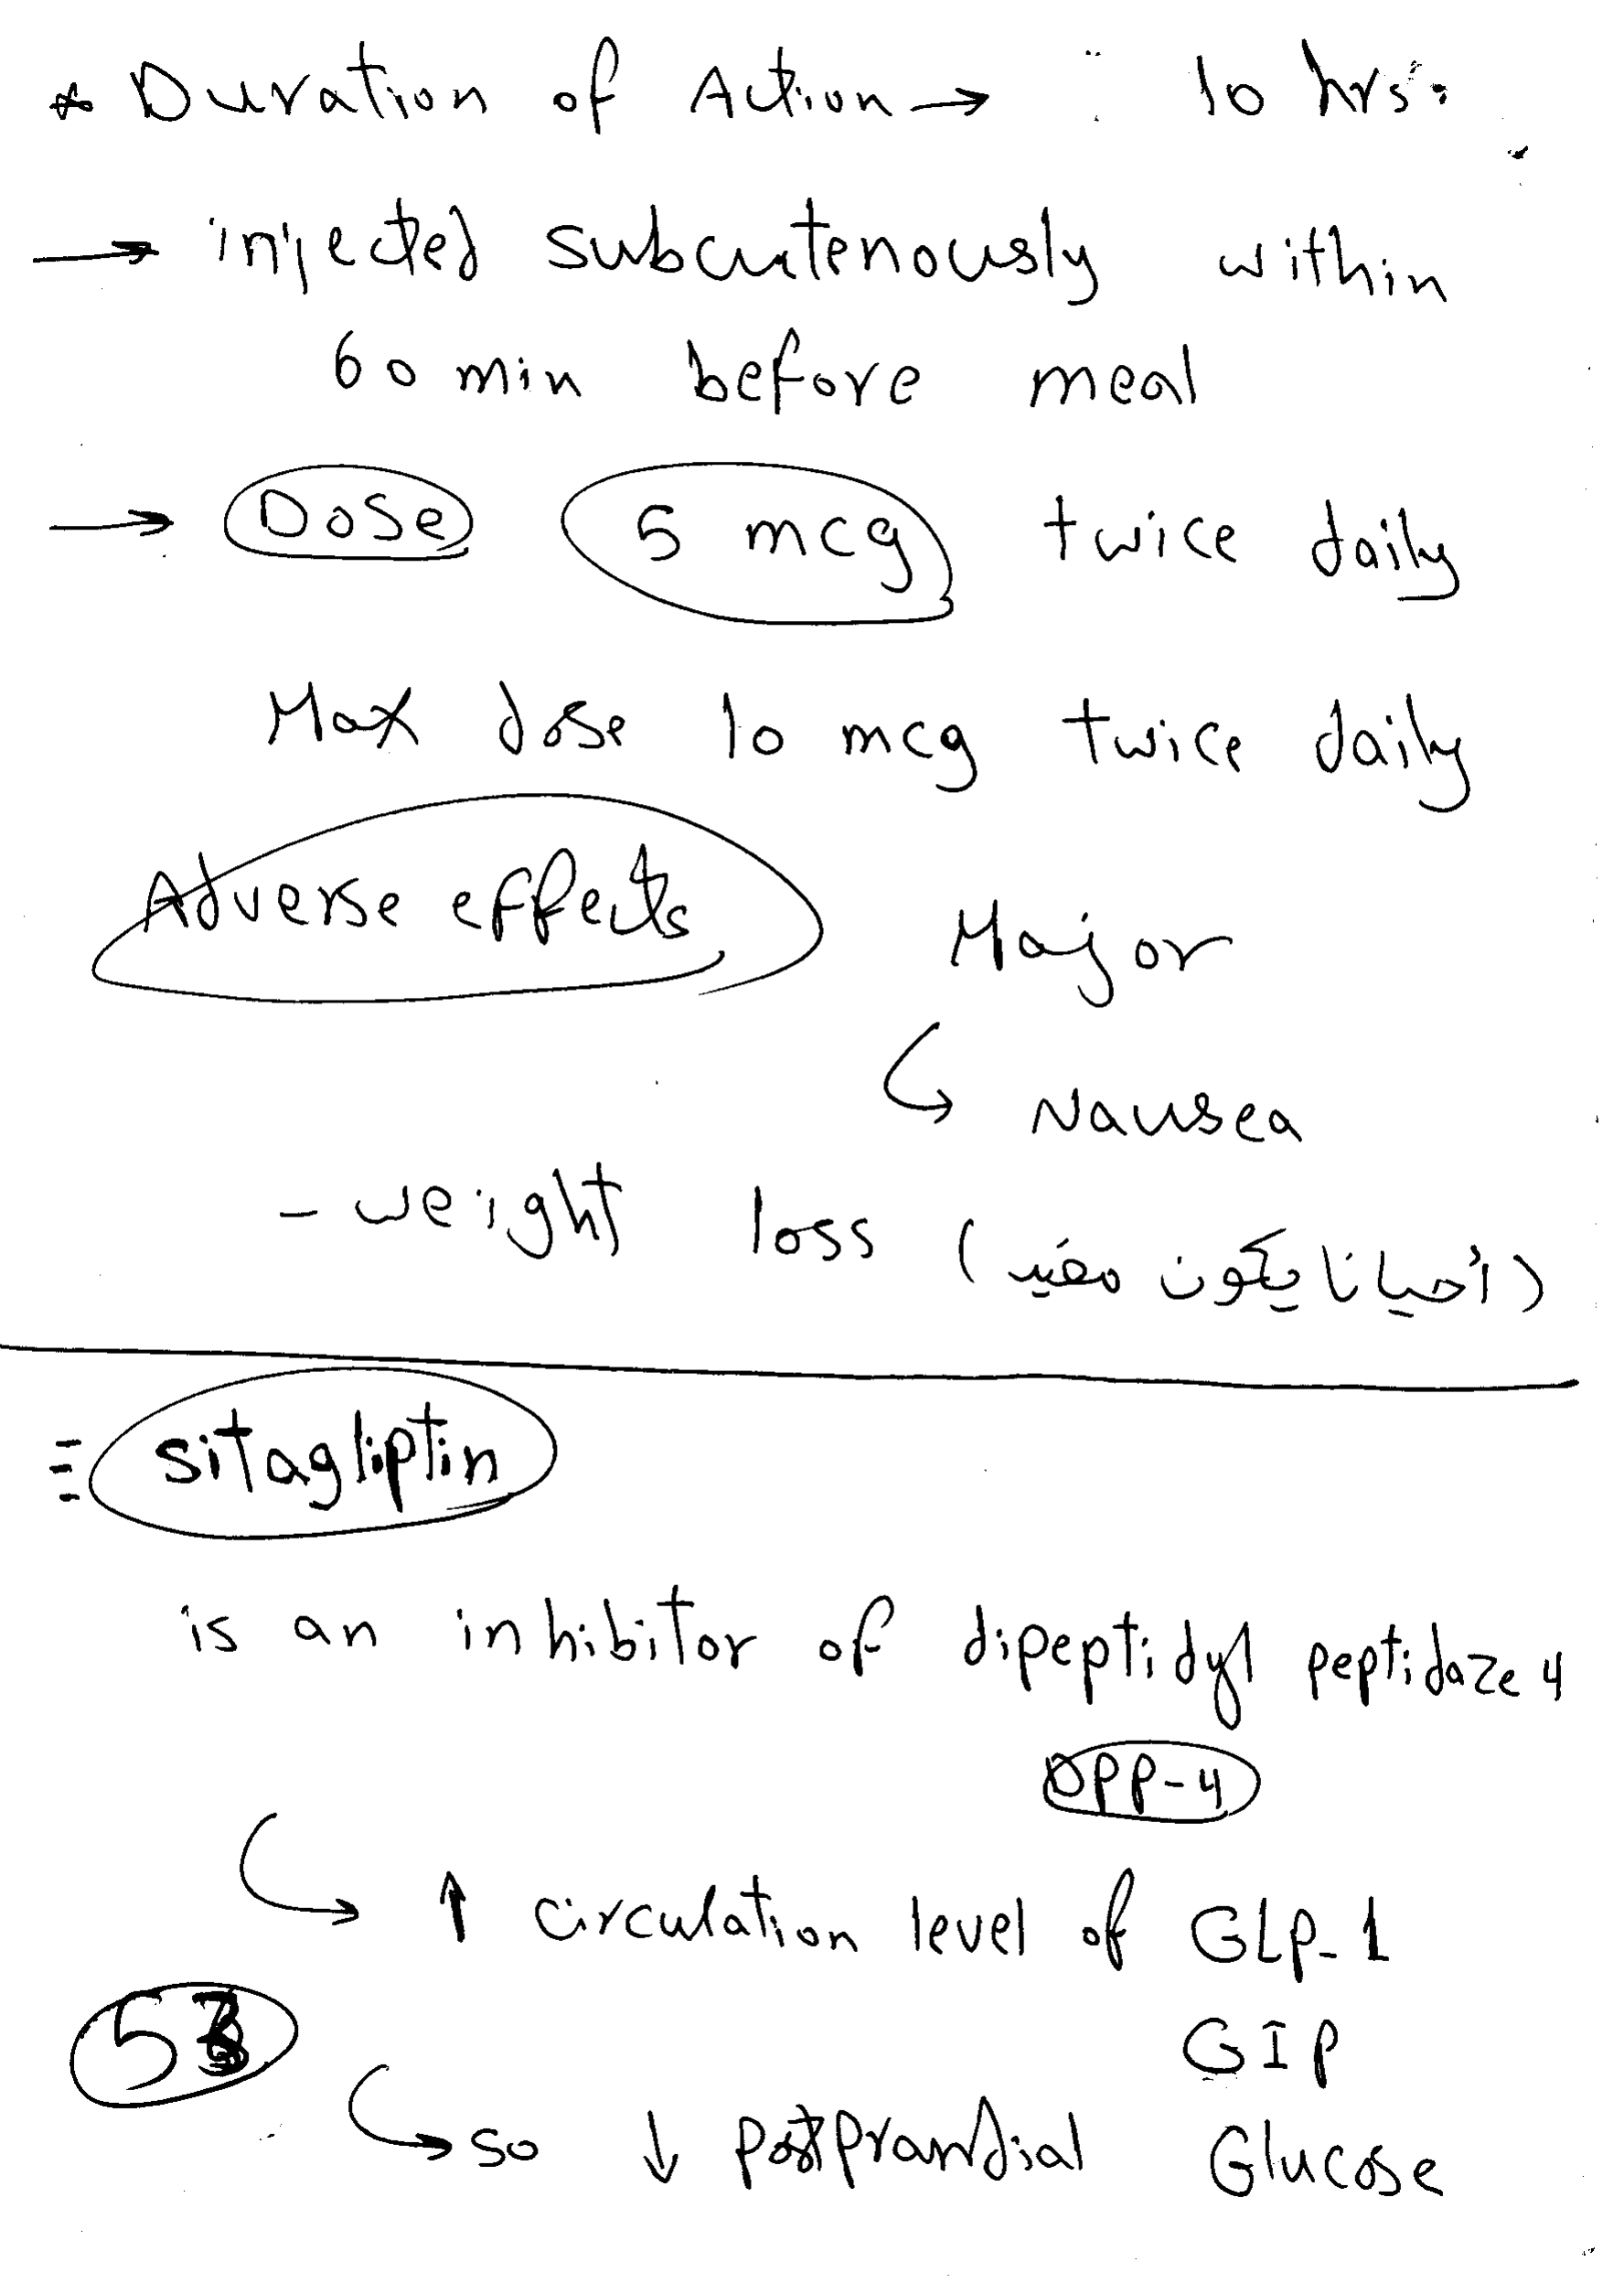 * Duration of Action → 10 hrs.
→ injected subcutenously within
60 min before meal
→ Dose 5 mcg twice daily
Max dose 10 mcg twice daily
Adverse effects Major
↳ Nausea
- weight loss (أحيانا يكون مفيد)
sitagliptin
is an inhibitor of dipeptidyl peptidaze 4
DPP-4
↳ ↑ circulation level of GLP-1
GIP
53
↳ so ↓ postprandial Glucose